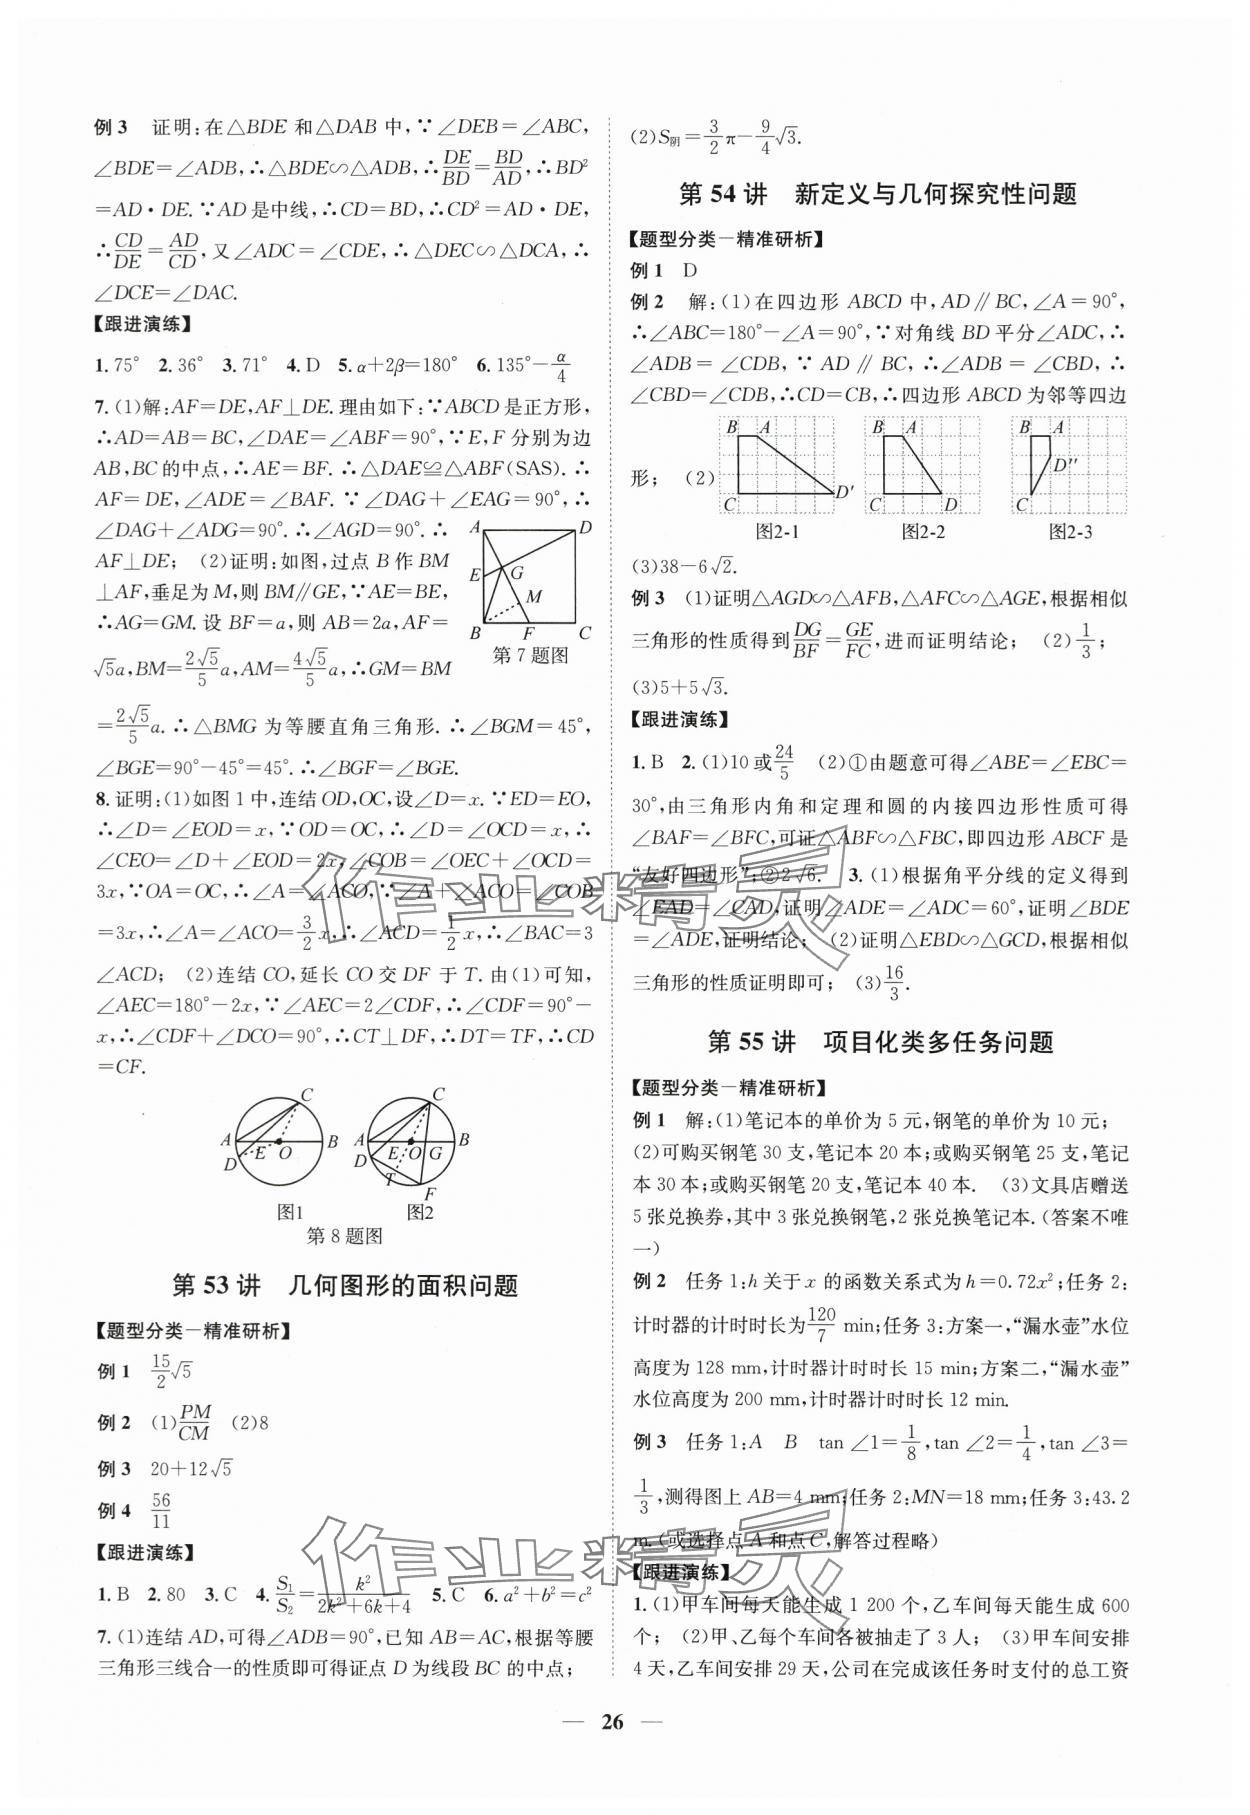 例 3　证明:在△BDE 和△DAB 中,∵∠DEB=∠ABC,
∠BDE=∠ADB,∴△BDE∽△ADB,∴DE/BD=BD/AD,∴BD²
=AD·DE.∵AD 是中线,∴CD=BD,∴CD²=AD·DE,
∴CD/DE=AD/CD,又∠ADC=∠CDE,∴△DEC∽△DCA,∴
∠DCE=∠DAC.
【跟进演练】
1.75°　2.36°　3.71°　4.D　5.α+2β=180°　6.135°-α/4
7.(1)解:AF=DE,AF⊥DE.理由如下:∵ABCD 是正方形,
∴AD=AB=BC,∠DAE=∠ABF=90°,∵E,F 分别为边
AB,BC 的中点,∴AE=BF.∴△DAE≌△ABF(SAS).∴
AF=DE,∠ADE=∠BAF.∵∠DAG+∠EAG=90°,∴
∠DAG+∠ADG=90°.∴∠AGD=90°.∴
AF⊥DE;　(2)证明:如图,过点 B 作 BM
⊥AF,垂足为 M,则 BM∥GE,∵AE=BE,
∴AG=GM.设 BF=a,则 AB=2a,AF=
√5a,BM=2√5/5a,AM=4√5/5a,∴GM=BM
A D E G M B F C
第 7 题图
=2√5/5a.∴△BMG 为等腰直角三角形.∴∠BGM=45°,
∠BGE=90°-45°=45°.∴∠BGF=∠BGE.
8.证明:(1)如图 1 中,连结 OD,OC,设∠D=x.∵ED=EO,
∴∠D=∠EOD=x,∵OD=OC,∴∠D=∠OCD=x,∴
∠CEO=∠D+∠EOD=2x,∠COB=∠OEC+∠OCD=
3x,∵OA=OC,∴∠A=∠ACO,∵∠A+∠ACO=∠COB
=3x,∴∠A=∠ACO=3/2x,∴∠ACD=1/2x,∴∠BAC=3
∠ACD;　(2)连结 CO,延长 CO 交 DF 于 T.由(1)可知,
∠AEC=180°-2x,∵∠AEC=2∠CDF,∴∠CDF=90°-
x,∴∠CDF+∠DCO=90°,∴CT⊥DF,∴DT=TF,∴CD
=CF.
C A E O B D
C A E O G B D T F
图1　图2
第 8 题图
第 53 讲　几何图形的面积问题
【题型分类—精准研析】
例 1　15/2√5
例 2　(1)PM/CM　(2)8
例 3　20+12√5
例 4　56/11
【跟进演练】
1.B　2.80　3.C　4.S₁/S₂=k²/(2k²+6k+4)　5.C　6.a²+b²=c²
7.(1)连结 AD,可得∠ADB=90°,已知 AB=AC,根据等腰
三角形三线合一的性质即可得证点 D 为线段 BC 的中点;
(2)S阴=3/2π-9/4√3.
第 54 讲　新定义与几何探究性问题
【题型分类—精准研析】
例 1　D
例 2　解:(1)在四边形 ABCD 中,AD∥BC,∠A=90°,
∴∠ABC=180°-∠A=90°,∵对角线 BD 平分∠ADC,∴
∠ADB=∠CDB,∵AD∥BC,∴∠ADB=∠CBD,∴
∠CBD=∠CDB,∴CD=CB,∴四边形 ABCD 为邻等四边
形;　(2)
B A C D′
B A C D
B A D″ C
图2-1　图2-2　图2-3
(3)38-6√2.
例 3　(1)证明△AGD∽△AFB,△AFC∽△AGE,根据相似
三角形的性质得到DG/BF=GE/FC,进而证明结论;　(2)1/3;
(3)5+5√3.
【跟进演练】
1.B　2.(1)10 或24/5　(2)①由题意可得∠ABE=∠EBC=
30°,由三角形内角和定理和圆的内接四边形性质可得
∠BAF=∠BFC,可证△ABF∽△FBC,即四边形 ABCF 是
“友好四边形”;②2√6.　3.(1)根据角平分线的定义得到
∠EAD=∠CAD,证明∠ADE=∠ADC=60°,证明∠BDE
=∠ADE,证明结论;　(2)证明△EBD∽△GCD,根据相似
三角形的性质证明即可;　(3)16/3.
第 55 讲　项目化类多任务问题
【题型分类—精准研析】
例 1　解:(1)笔记本的单价为 5 元,钢笔的单价为 10 元;
(2)可购买钢笔 30 支,笔记本 20 本;或购买钢笔 25 支,笔记
本 30 本;或购买钢笔 20 支,笔记本 40 本.　(3)文具店赠送
5 张兑换券,其中 3 张兑换钢笔,2 张兑换笔记本.(答案不唯
一)
例 2　任务 1:h 关于 x 的函数关系式为 h=0.72x²;任务 2:
计时器的计时时长为120/7 min;任务 3:方案一,“漏水壶”水位
高度为 128 mm,计时器计时时长 15 min;方案二,“漏水壶”
水位高度为 200 mm,计时器计时时长 12 min.
例 3　任务 1:A　B　tan ∠1=1/8,tan ∠2=1/4,tan ∠3=
1/3,测得图上 AB=4 mm;任务 2:MN=18 mm;任务 3:43.2
m.(或选择点 A 和点 C,解答过程略)
【跟进演练】
1.(1)甲车间每天能生成 1 200 个,乙车间每天能生成 600
个;　(2)甲、乙每个车间各被抽走了 3 人;　(3)甲车间安排
4 天,乙车间安排 29 天,公司在完成该任务时支付的总工资
作业精灵
作业精灵
— 26 —